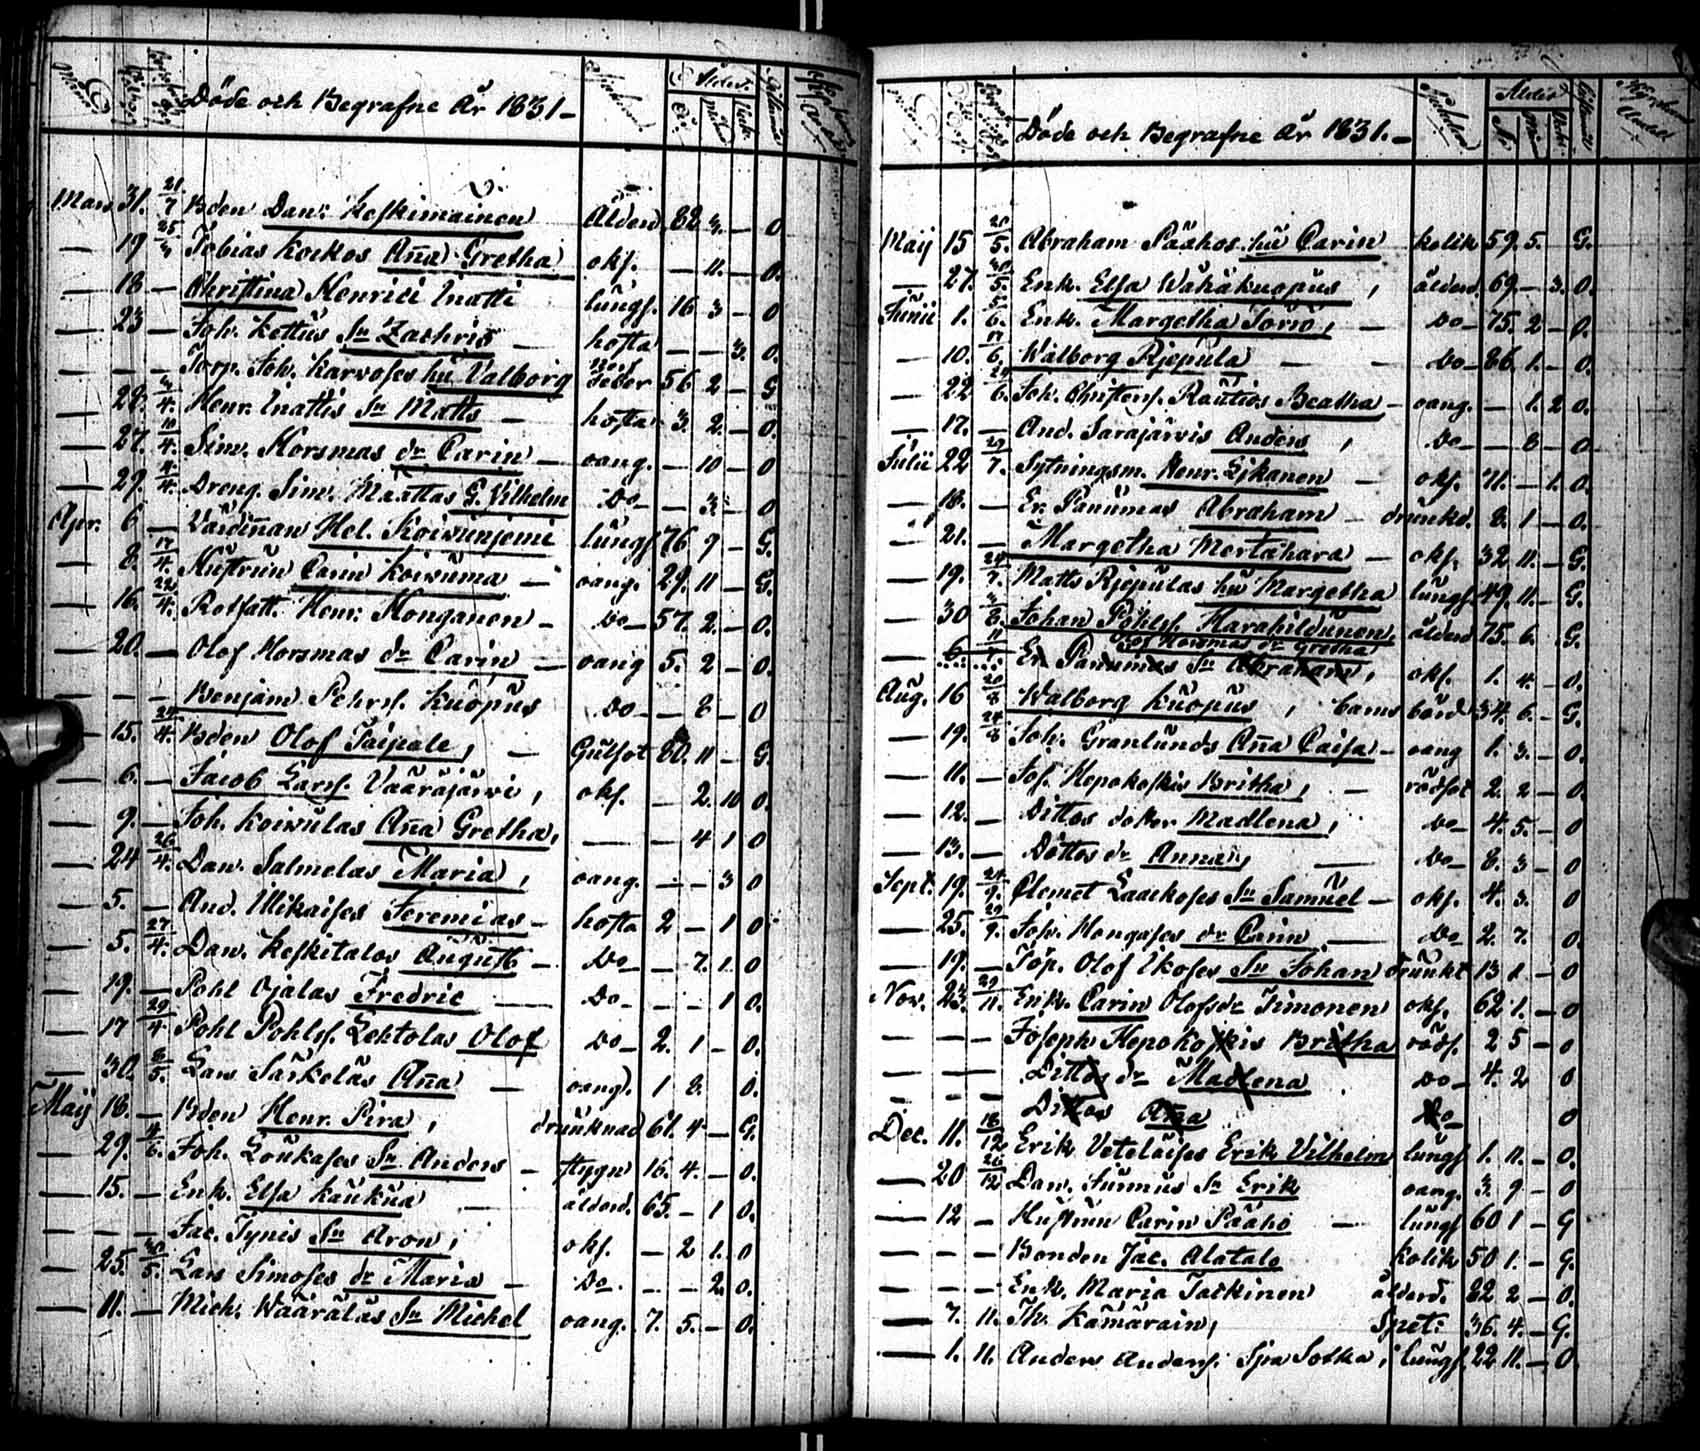 Döde och Begrafne År 1831-
Mars 31. 21/7 Bden Dan: Keskimainen Ålderd 88 3. — O
— 19 25/4 Tobias Kockos Aña Gretha okf. — 11. — O.
— 18 — Christina Henrici Inatti lungs. 16 3 — O
— 23 — Joh. Kettus Sn Zachris — hosta — — 3. O.
— — — Torp. Joh. Karvoses hu Valborg feber 56 2 — G
— 28. 4. Henr. Inattis Sn Matts — hosta 3. 2. — O.
— 27. 10/4. Sim. Horsmas dr Carin — oang. — 10 — O
— 29. 4. Dreng. Sim. Maattas G. Vilhelm Do — 3. — O
Apr. 6 — Hel. Koivuniemi lungs 76 9 — G.
— 8. 17/4. Hustrun Carin Koivuma — oang. 29. 11 — G.
— 16. 22/4. Rotfatt. Henr. Honganen — Do — 57. 2. — O.
— 20. — Olof Horsmas dr Carin — oang 5. 2 — O.
— — — Benjam Pehrs. Kuopus Do — — 8 — O
— 15. 24/4. Bden Olof Taipale, — Gulsot 80. 11 — G.
— 6. — Jacob Larss. Vaarajärvi, okf. — 2. 10 O.
— 9. — Joh. Koivulas Aña Gretha, — — 4 1 O
— 24 26/4. Dan. Salmelas Maria, oang. — — 3 O
— 5. — And. Mikaises Jeremias — hosta 2 — 1 O
— 5. 27/4. Dan. Kesketalos August — Do — — 7. 1. O
— 19. — Pohl Ojalas Fredric — Do — — — 1 O.
— 17 29/4. Pohl Pohls. Lehtolas Olof Do — 2. 1 — O.
— 30. 8/5. Lars Särkeläs Aña — oang. 1 8. O.
Maij 18. — Bden Henr. Pira, drunknad 61. 4 — G.
— 29. 4/6. Joh. Loukases Sn Anders — 16. 4. — O.
— 15. — Enk. Elsa Kaukua — ålderd. 65. — 1 O.
— — — Jac. Tynis Sn Aron, okf. — 2 1. O
— 25. 30/5. Lars Simoses dr Maria — Do — — — 2. O.
— 11. — Mich. Waäräläs Sn Michel oang. 7. 5. — O.
Döde och Begrafne År 1831.-
Maij 15 20/5. Abraham Pääkos hu Carin kolik 59. 5. — G.
— 27. 30/5. Enk. Elsa Wähäkuopus, ålderd. 69. — 3. O.
Junii 1. 5/6. Enk. Margetha Torvo, — Do — 75. 2 — O.
— 10. 17/6. Walborg Rjepula — — Do — 86. 1. — O.
— 22 29/6. Joh. Christens. Rautios Beatha — oang. — 1. 2 O.
— 17. — And. Sarajärvis Anders, Do — — 8 — O
Julii 22 29/7. Sytningsm. Henr. Likanen — okf. 71. — 1. O.
— 18. — Er. Panumas Abraham — drunkd. 8. 1 — O.
— 21. — Margetha Mertahara — okf. 32 11. — G.
— 19. 24/7. Matts Rjepulas hu Margetha lungs. 49. 11. — G.
— 30 8. Johan Pohls. Harahildunen, ålderd 75. 6. G.
Horsmas dr Gretha
— 6 Er Panumas Sn Abraham, okf. 1. 4. — O.
Aug. 16 20/8 Walborg Kuopus, barnsbörd 34. 6. — G.
— 19. 24/8 Joh. Granlunds Aña Caisa — oang 1. 3. — O.
— 11. — Jos. Hepokoskis Britha, — rödsot 2. 2 — O.
— 12. — Dittos dotter Madlena, Do — 4. 5. — O
— 13. — Dittos dr Anna, — Do — 8. 3 — O
Sept. 19. 24/9. Clemet Laackoses Sn Samuel — okf. 4. 3. O
— 25. 29/9. Joh. Hongases dr Carin — Do 2. 7. O.
— 19. — Top. Olof Ikoses Sn Johan drunkt 13 1. — O
Nov. 23. 29/11. Enk. Carin Olofsdr Timonen okf. 62 1. — O
— — — Joseph Hepokoskis Britha röds. 2 5 — O
— — — Dittos dr Madlena Do — 4. 2 O
— — — Dittos Aña Do — O
Dec. 11. 18/12 Erik Veteläises Erik Vilhelm lungs 1. 11. — O.
— 20 26/12 Dan. Jurmus Sn Erik oang. 3. 9 — O
— 12 — Hustrun Carin Pääho — lungs 60 1 — G
— — — Bonden Jac. Alatalo kolik 50 1. — G.
— — — Enk. Maria Tackinen ålderd. 82 2 — O.
— 7. 11. Th. Kämäräin, Spet: 36. 4. — G.
— 1. 11. Anders Anders. Sotka, lungs. 22 11. — O